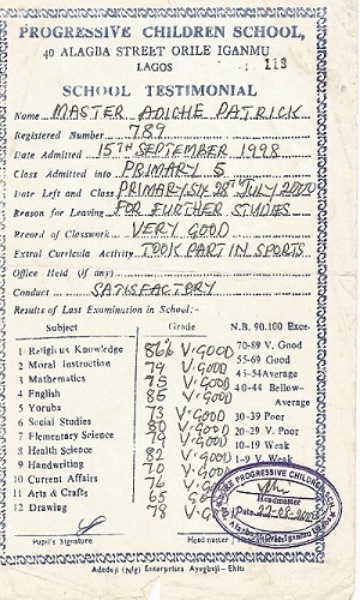 PROGRESSIVE CHILDREN SCHOOL,
40 ALAGBA STREET ORILE IGANMU
LAGOS
119
SCHOOL TESTIMONIAL
Name MASTER ADICHE PATRICK
Registered Number 789
Date Admitted 15TH SEPTEMBER 1998
Class Admitted into PRIMARY 5
Date Left and Class PRIMARY SIX 28TH JULY 2000
Reason for Leaving FOR FURTHER STUDIES
Record of Classwork VERY GOOD
Extra Curricula Activity TOOK PART IN SPORTS
Office Held (if any)
Conduct SATISFACTORY
Results of Last Examination in School:-
Subject Grade N.B. 90.100 Exce-
1 Religious Knowledge 86% V. GOOD 70-89 V. Good
2 Moral instruction 79 V. GOOD 55-69 Good
3 Mathematics 75 V. GOOD 45-54 Average
4 English 85 V. GOOD 40-44 Bellow-
Average
5 Yoruba 73 V. GOOD 30-39 Poor
6 Social Studies 80 V. GOOD 20-29 V. Poor
7 Elementary Science 79 V. GOOD 10-19 Weak
8 Health Science 82 V. GOOD 1-9 V. Weak
9 Handwriting 70 V. GOOD
10 Current Affairs 76 V. GOOD
11 Arts & Crafts 65
12 Drawing 78 V. GOOD
PROGRESSIVE CHILDREN SCH.
Headmaster
Date 22-08-2000
Pupil's Signature Headmaster / Headmistress
Adedoji (Nig) Enterprises Ayegbaju - Ekiti